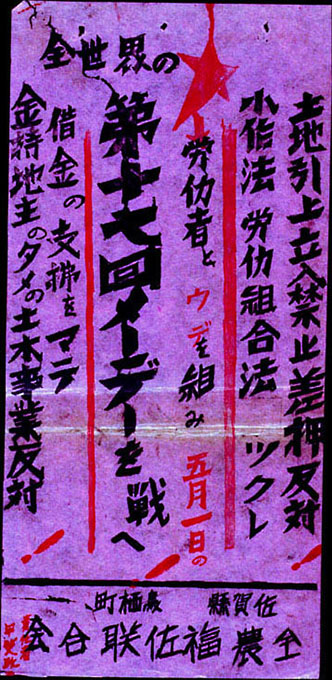 土地引上立入禁止差押反対!
小作法 労仂組合法 ツクレ
労仂者と ウデを組み 五月一日の
全世界の
第十七回メーデーを戦へ
借金の支拂をマテ
金持地主のタメの土木事業反対!
佐賀縣 鳥栖町
全農福佐联合会
責任者